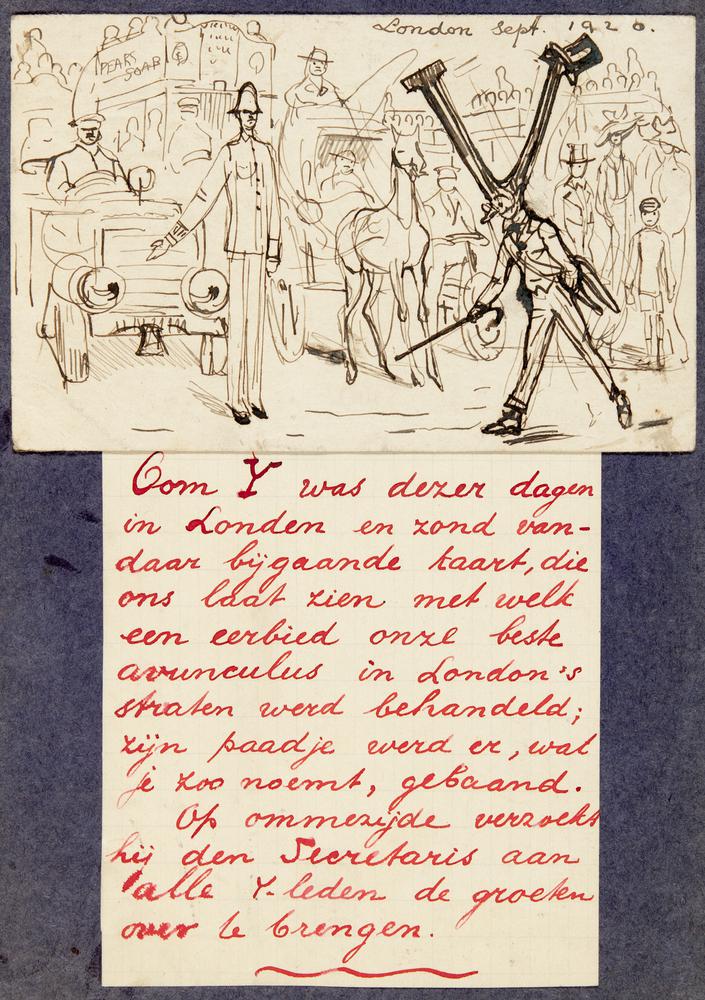 London Sept. 1920.
PEARS
SOAP
Oom Y was dezer dagen
in Londen en zond van-
daar bijgaande kaart, die
ons laat zien met welk
een eerbied onze beste
avunculus in London's
straten werd behandeld;
zijn paadje werd er, wat
je zoo noemt, gebaand.
Op ommezijde verzoekt
hij den Secretaris aan
alle Y-leden de groeten
over te brengen.